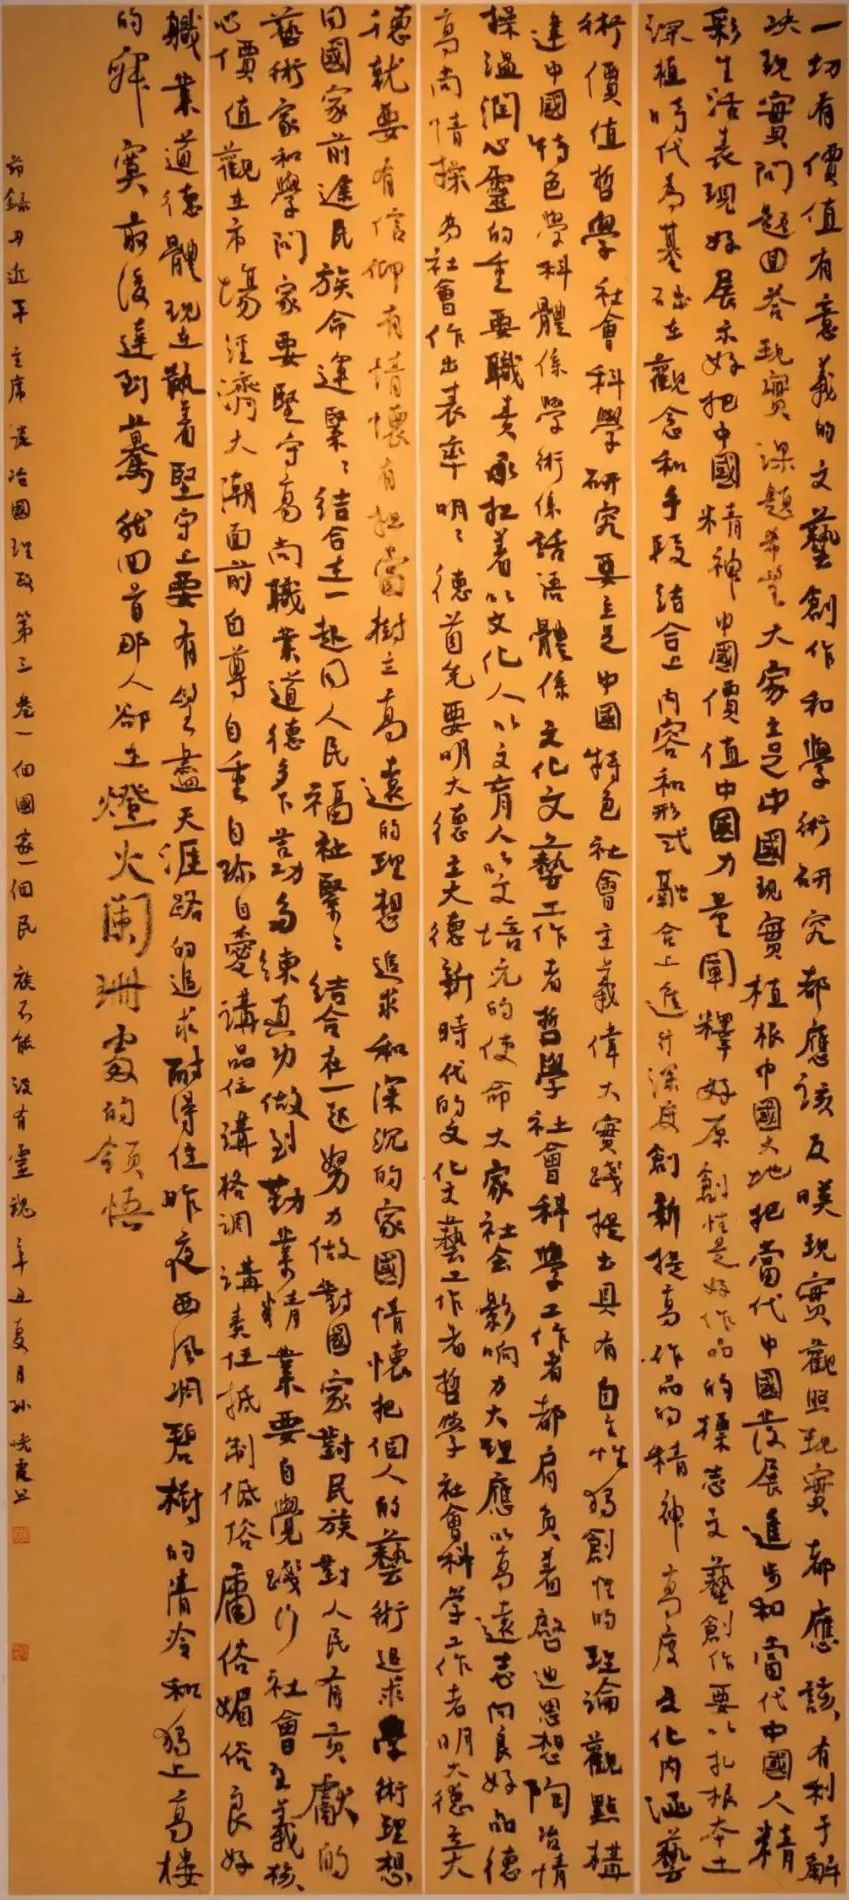 一切有價值有意義的文藝創作和學術研究都應該反映現實觀照現實都應該有利于解
決現實問題回答現實課題希望大家立足中國現實植根中國大地把當代中國發展進步和當代中國人精
彩生活表現好展示好把中國精神中國價值中國力量闡釋好原創性是好作品的標志文藝創作要以扎根本土
深植時代為基礎在觀念和手段結合上內容和形式融合上進行深度創新提高作品的精神高度文化內涵藝
術價值哲學社會科學研究要立足中國特色社會主義偉大實踐提出具有自主性獨創性的理論觀點構
建中國特色學科體係學術係話語體係文化文藝工作者哲學社會科學工作者都肩負着啓迪思想陶冶情
操溫潤心靈的重要職責承担着以文化人以文育人以文培元的使命大家社会影响力大理應以高遠志向良好品德
高尚情操為社會作出表率明明德首先要明大德立大德新時代的文化文藝工作者哲學社會科学工作者明大德立大
德就要有信仰有情懷有担當樹立高遠的理想追求和深沉的家國情懷把個人的藝術追求學術理想
同國家前途民族命運緊緊結合在一起同人民福祉緊緊結合在一起努力做對國家對民族對人民有貢獻的
藝術家和學問家要堅守高尚職業道德多下苦功多練真功做到勤業精業要自覺踐行社會主義核
心價值觀在市場經濟大潮面前自尊自重自珍自愛講品位講格調講責任抵制低俗庸俗媚俗良好
職業道德體現在執着堅守上要有望盡天涯路的追求耐得住昨夜西風凋碧樹的清冷和獨上高楼
的寂寞最後達到驀然回首那人卻在燈火闌珊處的領悟
節錄習近平主席談治國理政第三卷一個國家一個民族不能没有靈魂辛丑夏月孫曉霞书